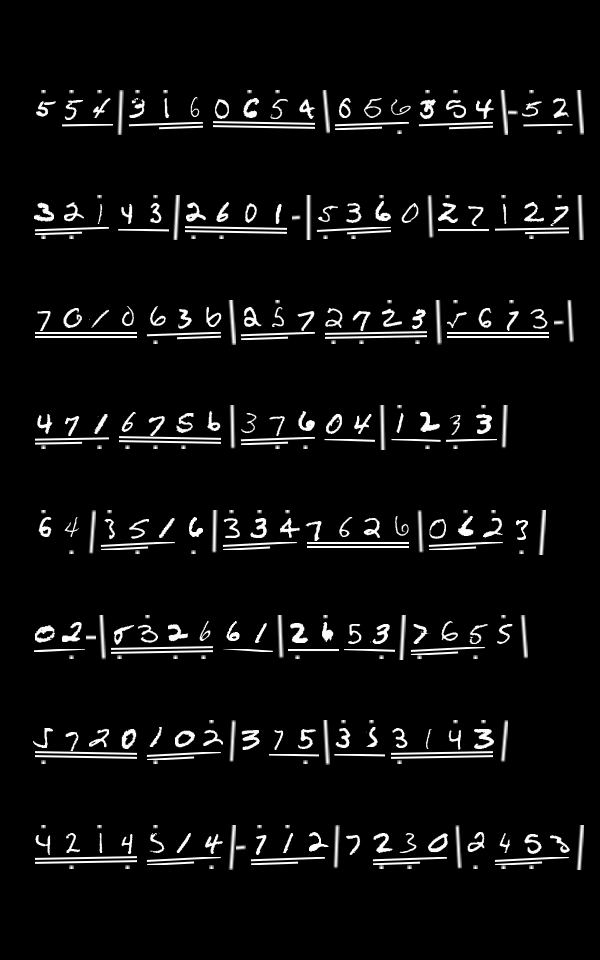 5 5 4 | 3 1 6 0 6 5 4 | 6 5 6 3 5 4 | - 5 2 |
3 2 1 4 3 | 2 6 0 1 - | 5 3 6 0 | 2 7 1 2 7 |
7 0 1 0 6 3 6 | 2 5 7 2 7 2 3 | 5 6 7 3 - |
4 7 1 6 7 5 6 | 3 7 6 0 4 | 1 2 3 3 |
6 4 | 3 5 1 6 | 3 3 4 7 6 2 6 | 0 6 2 3 |
0 2 - | 5 3 2 6 6 1 | 2 6 5 3 | 7 6 5 5 |
5 7 2 0 1 0 2 | 3 7 5 | 3 5 3 1 4 3 |
4 2 1 4 5 1 4 | - 7 1 2 | 7 2 3 0 | 2 4 5 3